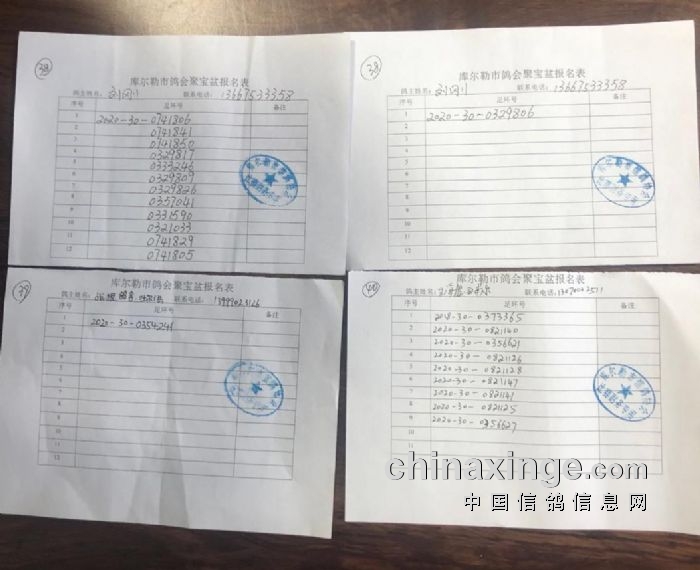 39
库尔勒市鸽会聚宝盆报名表
鸽主姓名： 联系电话：13667533358
序号 足环号 备注
1 2020-30-0741806
2 0741841
3 0741850
4 0329817
5 0333246
6 0329809
7 0329826
8 0357041
9 0331590
10 0321033
11 0741829
12 0741805
38
库尔勒市鸽会聚宝盆报名表
鸽主姓名： 联系电话：13667533358
序号 足环号 备注
1 2020-30-0329806
2
3
4
5
6
7
8
9
10
11
12
37
库尔勒市鸽会聚宝盆报名表
鸽主姓名： 联系电话：
序号 足环号 备注
1
2
3
4
5
6
7
8
9
10
11
12
40
库尔勒市鸽会聚宝盆报名表
鸽主姓名： 联系电话：
序号 足环号 备注
1 2018-30-0373365
2 2020-30-0821140
3 2020-30-0356621
4 2020-30-0821126
5 2020-30-0821128
6 2020-30-0821147
7 2020-30-0821141
8 2020-30-0821125
9 2020-30-0356627
10
11
12
chinaxinge.com
中国信鸽信息网